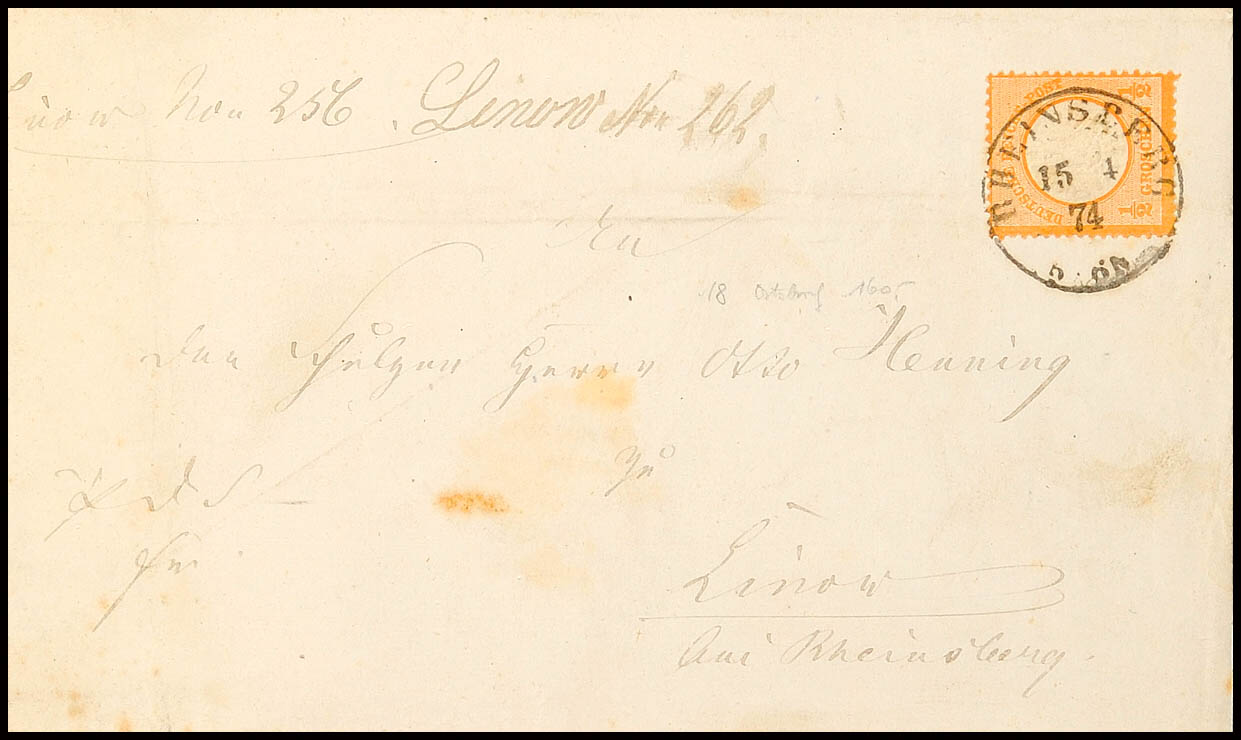 Linow Non 256. Linow Non 262.
DEUTSCHE REICHS-POST
½ GROSCHEN ½
RHEINSBERG
15 4
74
An
18 1605
den Schulzen Herrn Otto Henning
zu
Linow
bei Rheinsberg.